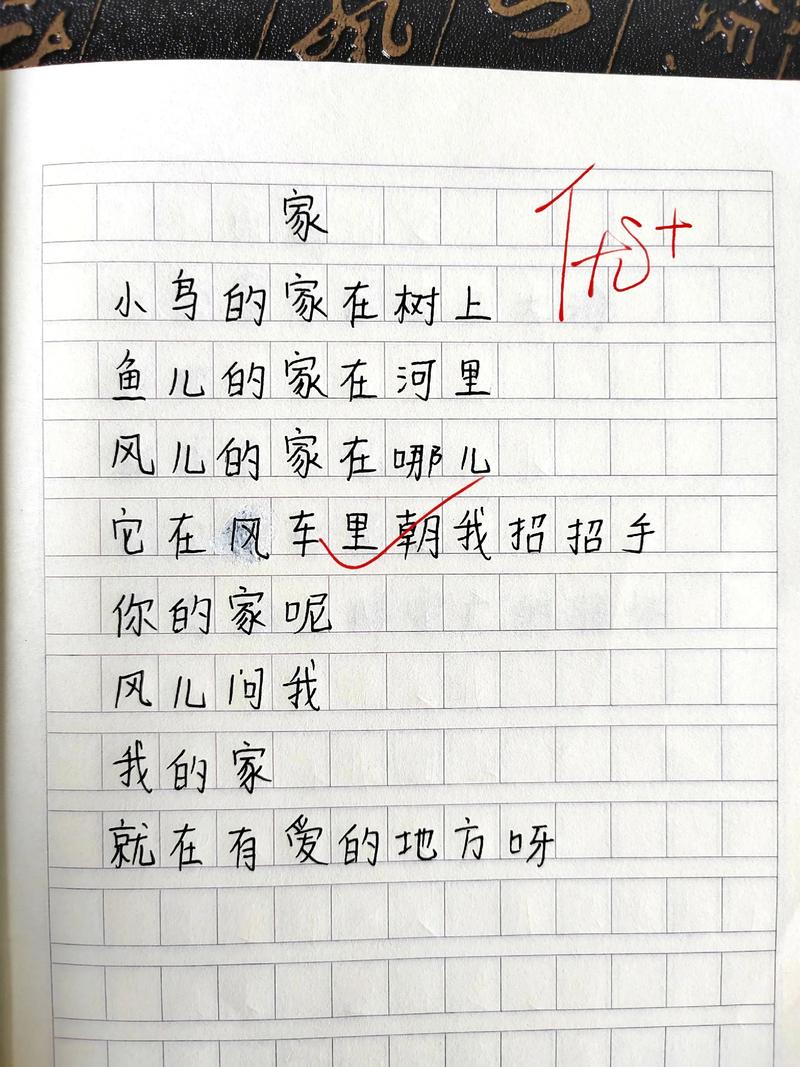 家
小鸟的家在树上
鱼儿的家在河里
风儿的家在哪儿
它在风车里朝我招招手
你的家呢
风儿问我
我的家
就在有爱的地方呀